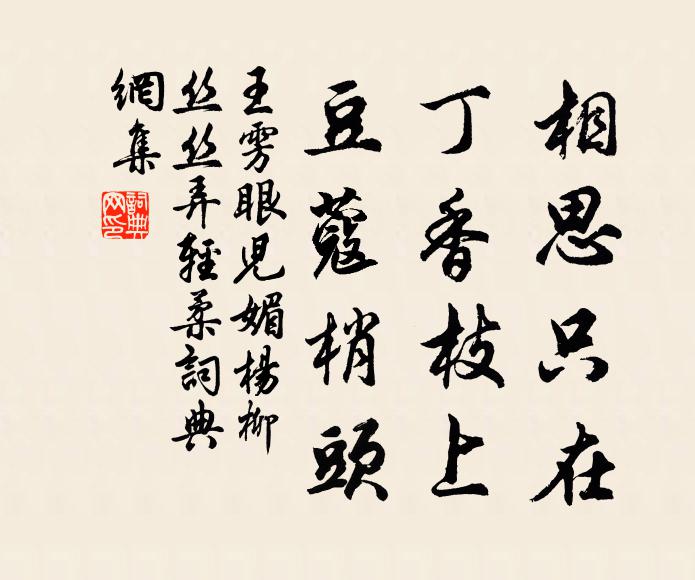 相思只在
丁香枝上
豆蔻梢頭
王雱眼児媚楊柳
丝丝弄轻柔詞典
網集
詞典
网印